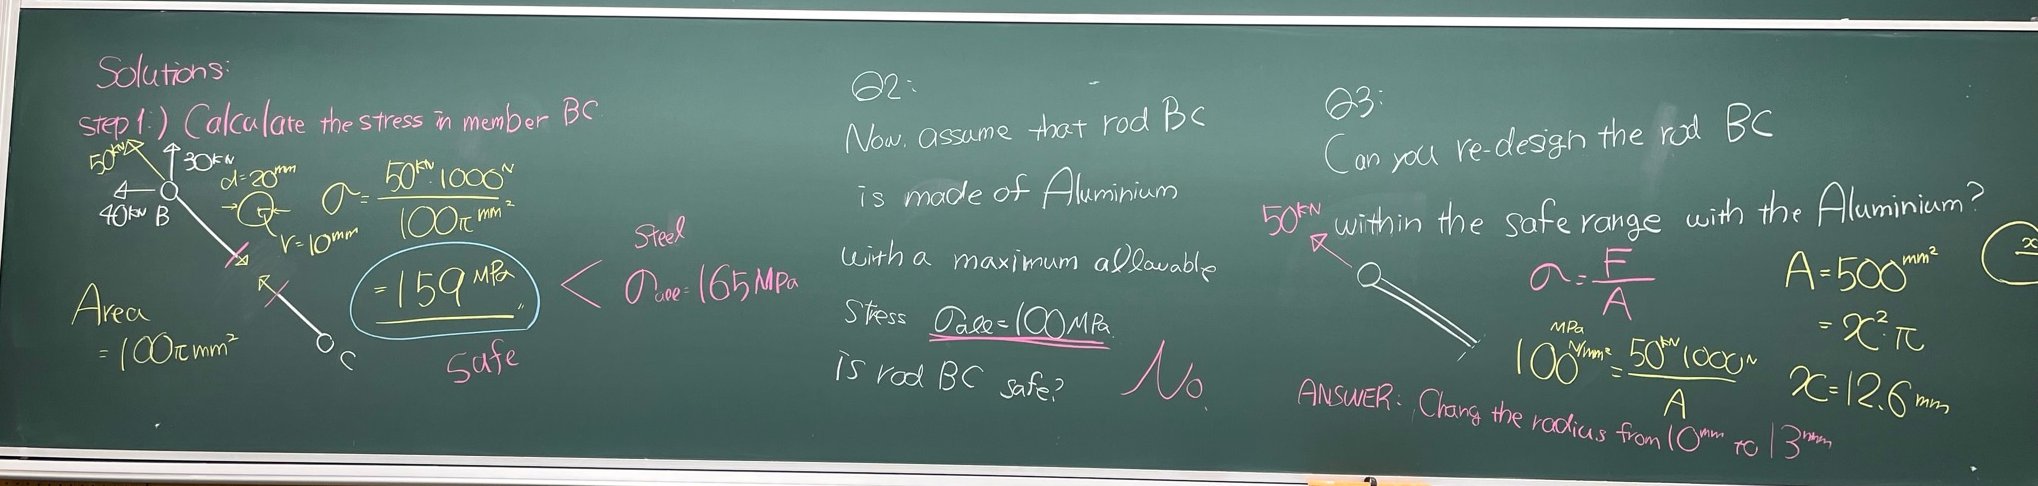 Solutions:
Step 1.) Calculate the stress in member BC
50kN
30kN
40kN B
d=20mm
r=10mm
σ = 50kN·1000N / 100π mm²
= 159 MPa
Safe
<
Steel
σall = 165 MPa
Area
= 100π mm²
C
Q2:
Now, assume that rod BC
is made of Aluminium
with a maximum allowable
stress σall = 100 MPa
is rod BC safe?
No.
Q3:
Can you re-design the rod BC
within the safe range with the Aluminium?
50kN
σ = F / A
MPa
100 N/mm² = 50kN 1000N / A
A = 500 mm²
= x²·π
x = 12.6 mm
x
ANSWER: Chang the radius from 10mm to 13mm